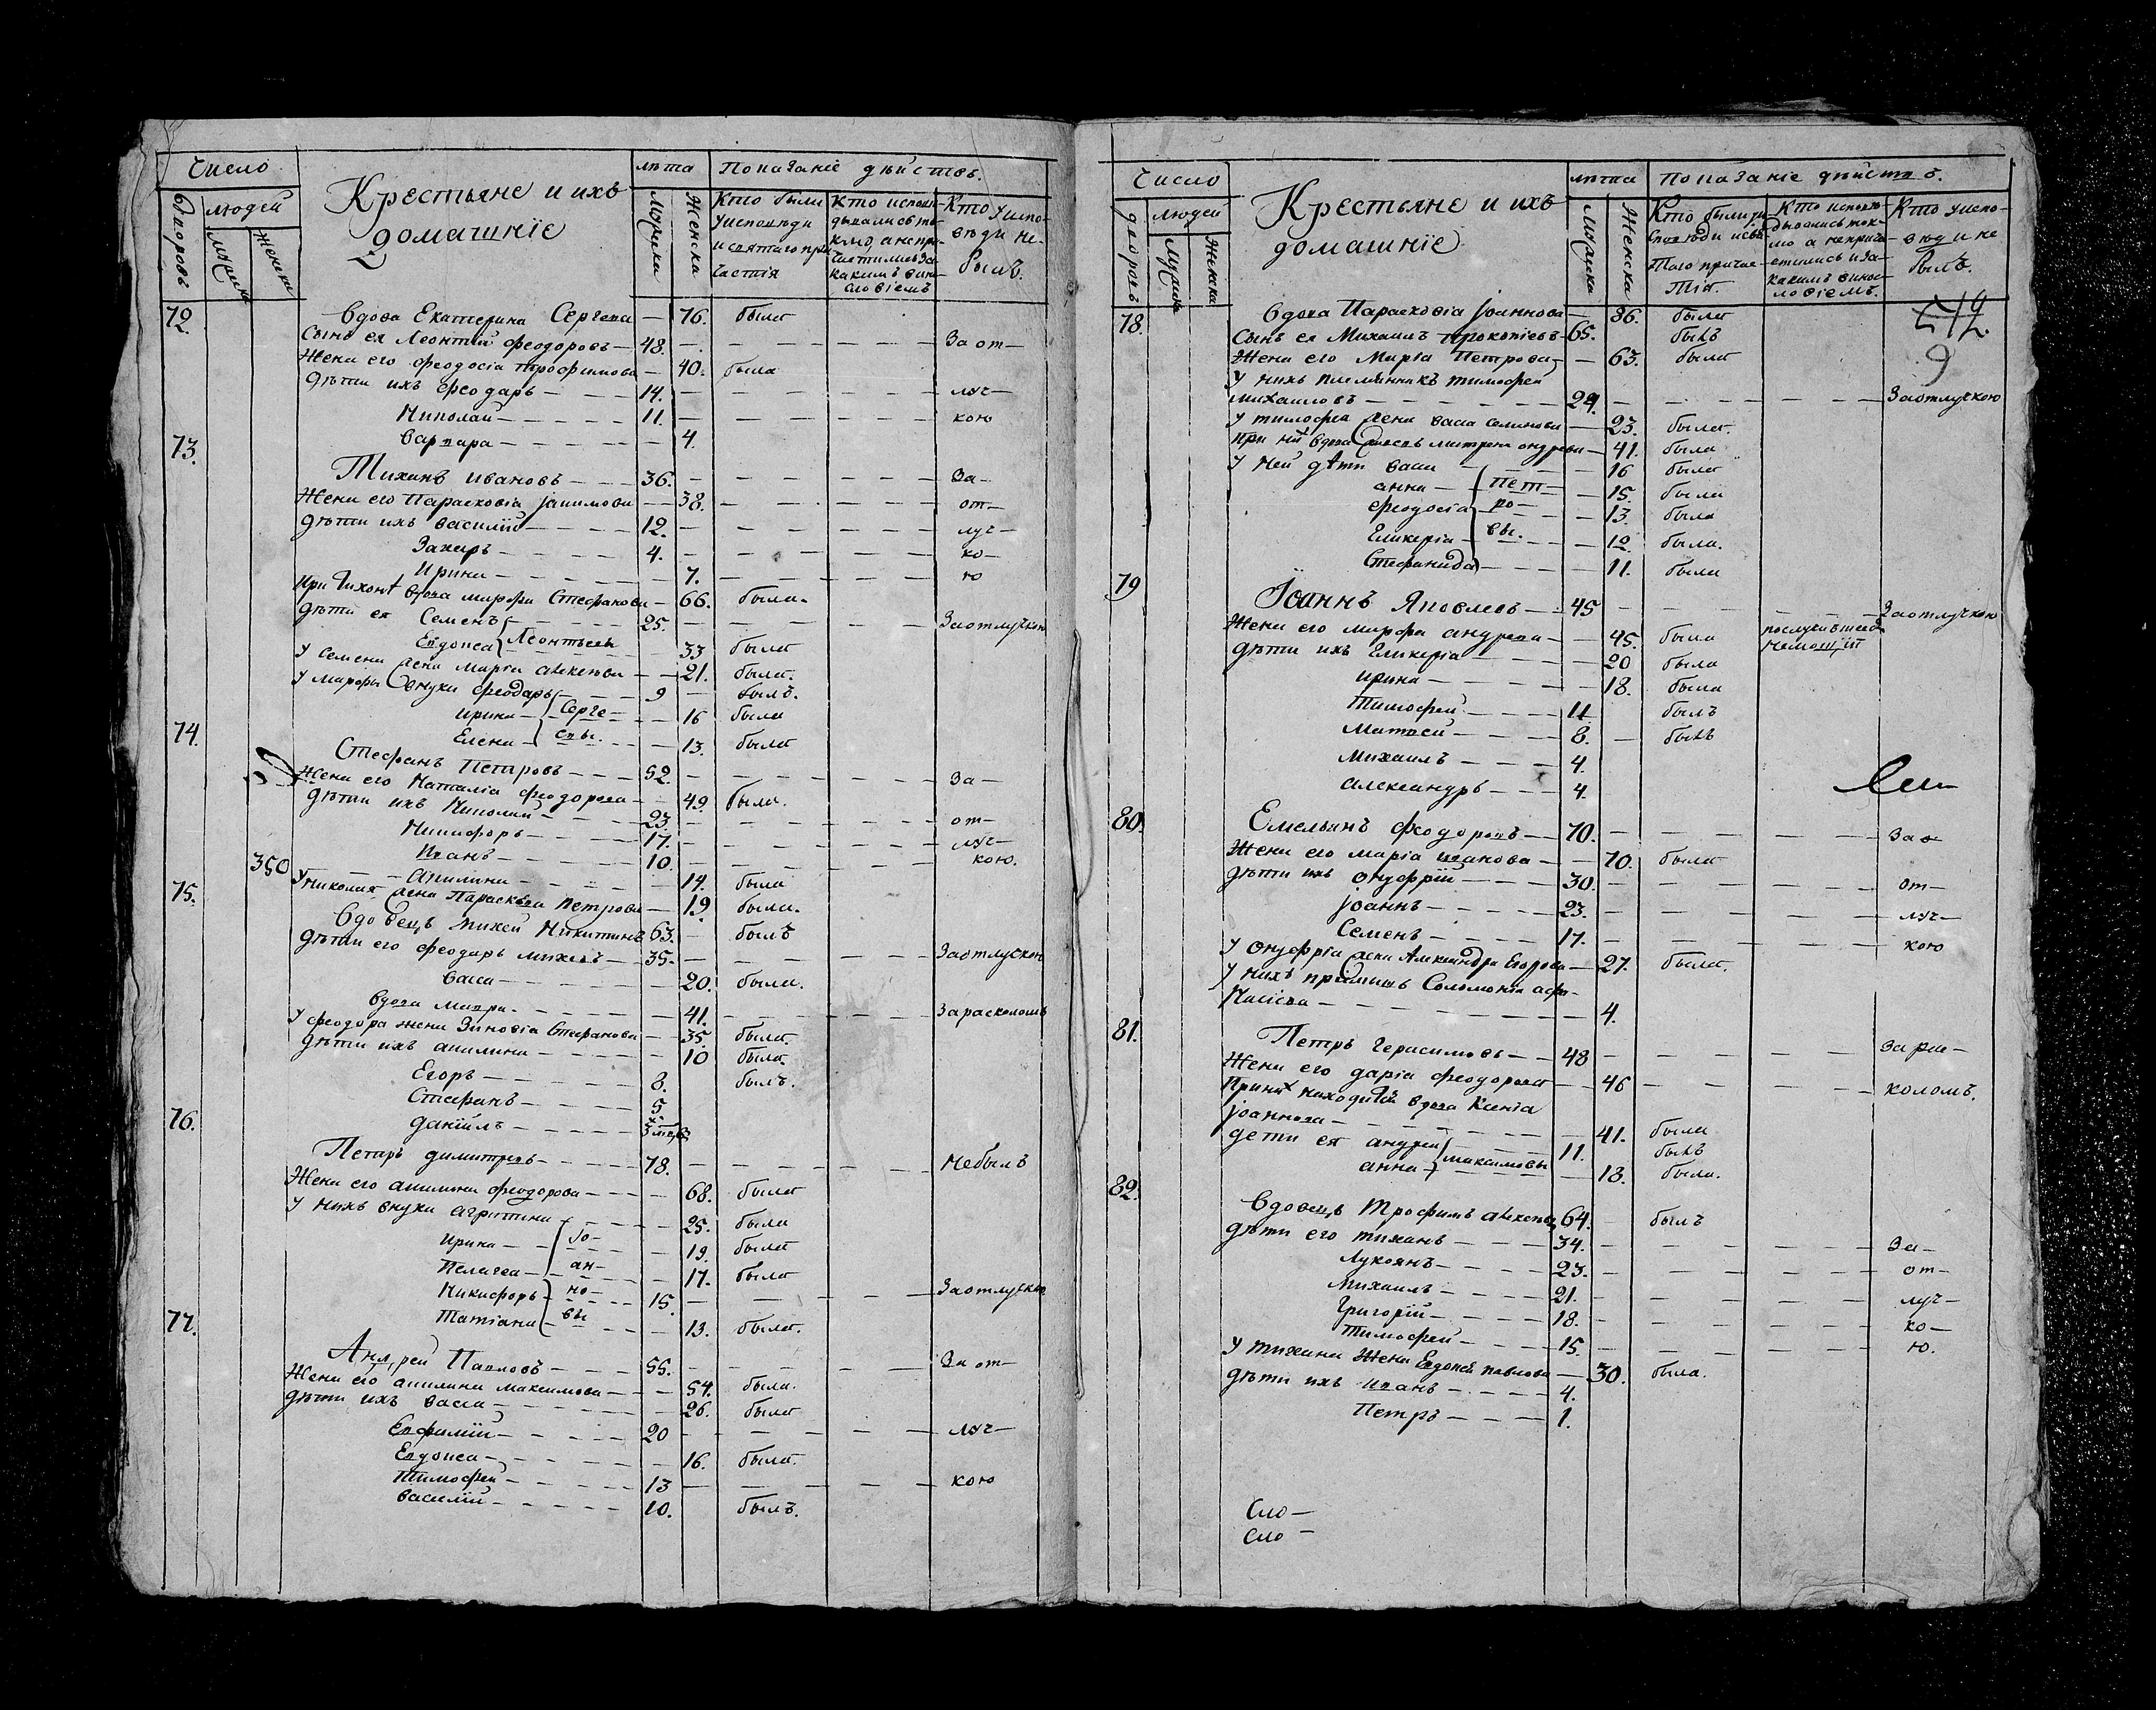 Число
Крестьяне и ихъ
домашнїе
лѣта
Показанїе дѣйствъ.
дворовъ
людей
Мужеска
Женска
Мужеска
Женска
Кто были
у исповѣди
и святаго при
частїя
Кто исповѣ-
дывались то-
кмо, а не при-
частились и за
какимъ вин-
словїемъ
Кто у испо-
вѣди не-
былъ.
72. Вдова Екатерина Сергеева — 76. была
Сынъ ея Леонтїй Феодоровъ — 48. — За от—
Жена его Феодосїа Трофимова — 40. была
Дѣти ихъ Феодаръ — 14. — луч—
Николай — 11. — кою
Варвара — 4.
73. Тиханъ Ивановъ — 36. — За—
Жена его Парасковїа Іакимова — 38. — от—
Дѣти ихъ Василїй — 12. — луч—
Захаръ — 4. — ко—
Ирина — 7. — ю
При Тихонѣ вдова Марфа Стефанова — 66. была.
Дѣти ея Семенъ — 25. — За отлучкою
Евдокеа Леонтьевы 33 была
У Семена жена Марїа Алексѣева — 21. была.
У Марфы внуки Феодаръ — 9 — былъ.
Ирина — Серге— 16 была
Елена — евы. — 13. была
74. Стефанъ Петровъ — 52. — За—
Жена его Наталїа Феодорова — 49. была.
Дѣти ихъ Николай — 23. — от—
Никифоръ — 17. — луч—
Иванъ — 10. — кою.
350 Акилина — 14. была
75. У Николая жена Парасквеа Петрова — 19. была.
Вдовецъ Михей Никитинъ 63. — былъ
Дѣти его Феодаръ Михеевъ — 35. — За отлучкою
Васса — 20. была.
Вдова Мавра. — 41. — За расколомъ
У Феодора жена Зиновїа Стефанова — 35. была.
Дѣти ихъ Акилина — 10 была
Егоръ — 8. былъ.
Стефанъ — 5
Данїилъ — 3
76. Петаръ Димитревъ — 78. — Небылъ
Жена его Акилина Феодорова — 68. была
У нихъ внуки Агрипина — 25. была
Ирина — Іо— 19. была
Пелагеа — ан— 17. была
Никифоръ — но— 15. — За отлучкою
Татїана — вы — 13. была.
77. Андрей Павловъ — 55. — За от—
Жена его Акилина Максимова — 54. была.
Дѣти ихъ Васса — 26. была
Евфимїй — 20 — луч—
Евдокеа — 16. была.
Тимофей — 13 — кою
Василїй — 10. былъ.
Число
Крестьяне и ихъ
домашнїе
лѣта
Показанїе дѣйствъ.
дворовъ
Людей
Мужеска
Женска
Мужеска
Женска
Кто были у и
сповѣди и свя
таго причас
тїя.
Кто исповѣ-
дывались ток-
мо а неприча-
стились и за-
какимъ винос-
ловїемъ.
Кто у испо-
вѣди не
былъ.
512.
9
78. Вдова Парасковїа Іоаннова — 86. была
Сынъ ея Михаилъ Прокопїевъ — 65. былъ
Жена его Марїа Петрова — 63. была
У нихъ племянникъ Тимофей
Михаиловъ — 24. — За отлучкою
У Тимофеа жена Васса Семионова — 23. была.
При ней вдова Митрена Андреева — 41. была
У ней дѣти Васса — 16 была
Анна — Пет— 15. была
Феодосїа — ро— 13. была
Гликерїа — вы. — 12. была.
Стефанида — 11. была
79 Іоаннъ Яковлевъ — 45 — За отлучкою
Жена его Марфа Андреева — 45. была
Дѣти ихъ Гликерїа — 20 была
Ирина — 18. была
Тимофей. — 11 былъ
Матвей — 8. — былъ
Михаилъ — 4.
Александръ — 4.
80. Емельянъ Феодоровъ — 70. — За о
Жена его Марїа Иванова — 70. была
Дѣти ихъ Онуфрїй — 30. — от—
Іоаннъ — 23. — луч—
Семенъ — 17. — кою
У Онуфрїа жена Александра Егорова — 27. была.
У нихъ прїимышъ Соломонїа Афа-
насїева — 4.
81. Петръ Герасимовъ — 48 — За рас—
Жена его Дарїа Феодорова — 46 — коломъ.
При них находится вдова Ксенїа
Іоаннова — 41. была
Дети ея Андрей Максимовы 11. былъ
Анна — 13. была.
82. Вдовецъ Трофимъ Алексеевъ 64. — былъ
Дѣти его Тиханъ — 34. — За—
Лукоянъ — 23. — от—
Михаилъ — 21. — луч—
Григорїй — 18. — ко—
Тимофей — 15. — ю.
У Тихана жена Евдокеа Павлова — 30. была.
Дѣти ихъ Иванъ — 4.
Петръ — 1.
Сло—
Сло—